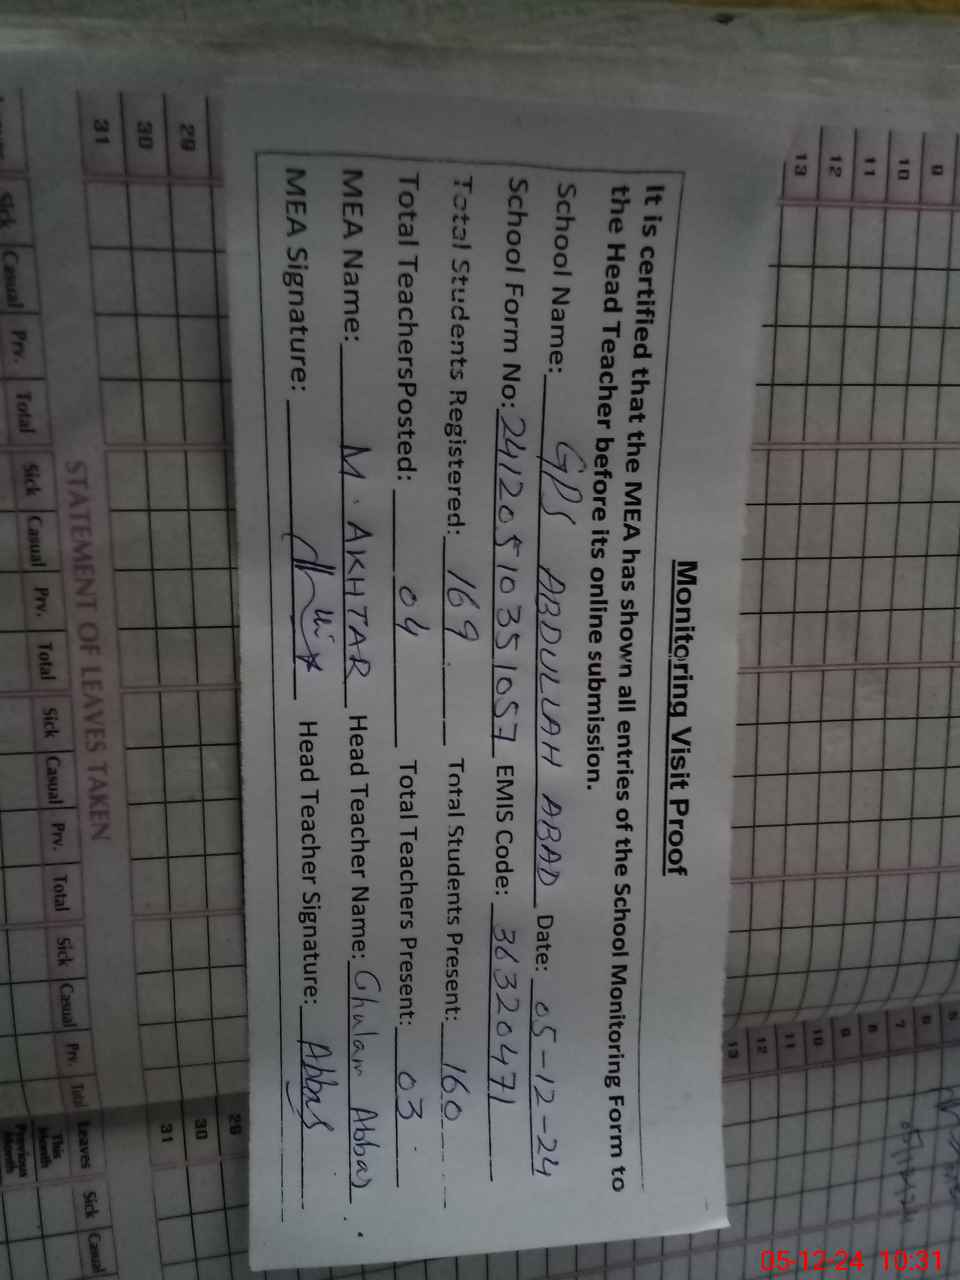 Monitoring Visit Proof
It is certified that the MEA has shown all entries of the School Monitoring Form to
the Head Teacher before its online submission.
School Name: GPS ABDULLAH ABAD Date: 05-12-24
School Form No: 24120510351057 EMIS Code: 36320471
Total Students Registered: 169 Total Students Present: 160
Total TeachersPosted: 04 Total Teachers Present: 03
MEA Name: M. AKHTAR Head Teacher Name: Ghulam Abbas
MEA Signature: Head Teacher Signature: Abbas
9
10
11
12
13
5
6
7
8
9
10
11
12
13
29
30
31
29
30
31
STATEMENT OF LEAVES TAKEN
Sick Casual Prv. Total Sick Casual Prv. Total Sick Casual Prv. Total Sick Casual Prv. Total Leaves Sick Casual
This Month
Previous Month
05-12-24 10:31